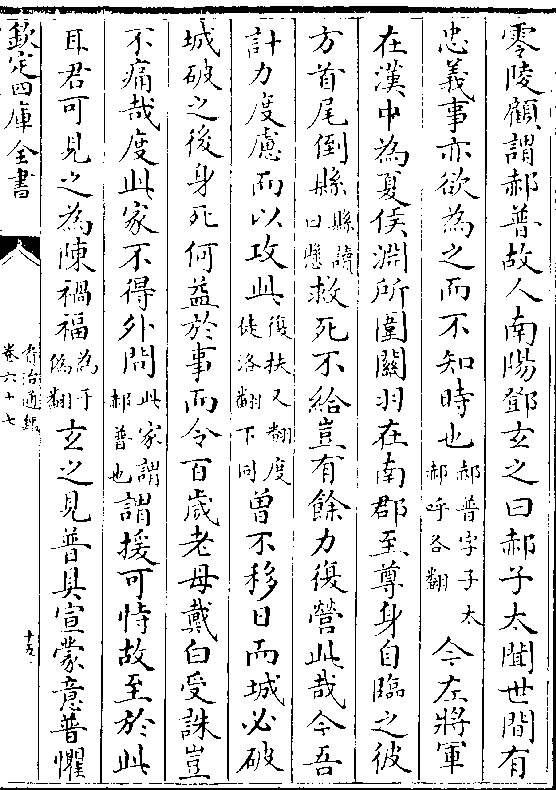 零陵顧謂郝普故人南陽鄧玄之曰郝子太聞世間有
忠義事亦欲為之而不知時也郝普字子太郝呼各翻今左將軍
在漢中為夏侯淵所圍關羽在南郡至尊身自臨之彼
方首尾倒縣縣讀曰懸救死不給豈有餘力復營此哉今吾
計力度慮而以攻此復扶又翻度徒洛翻下同曾不移日而城必破
城破之後身死何益於事而令百歲老母戴白受誅豈
不痛哉度此家不得外問此家謂郝普也謂援可恃故至於此
耳君可見之為陳禍福為于偽翻玄之見普具宣蒙意普懼
欽定四庫全書
資治通鑑
卷六十七